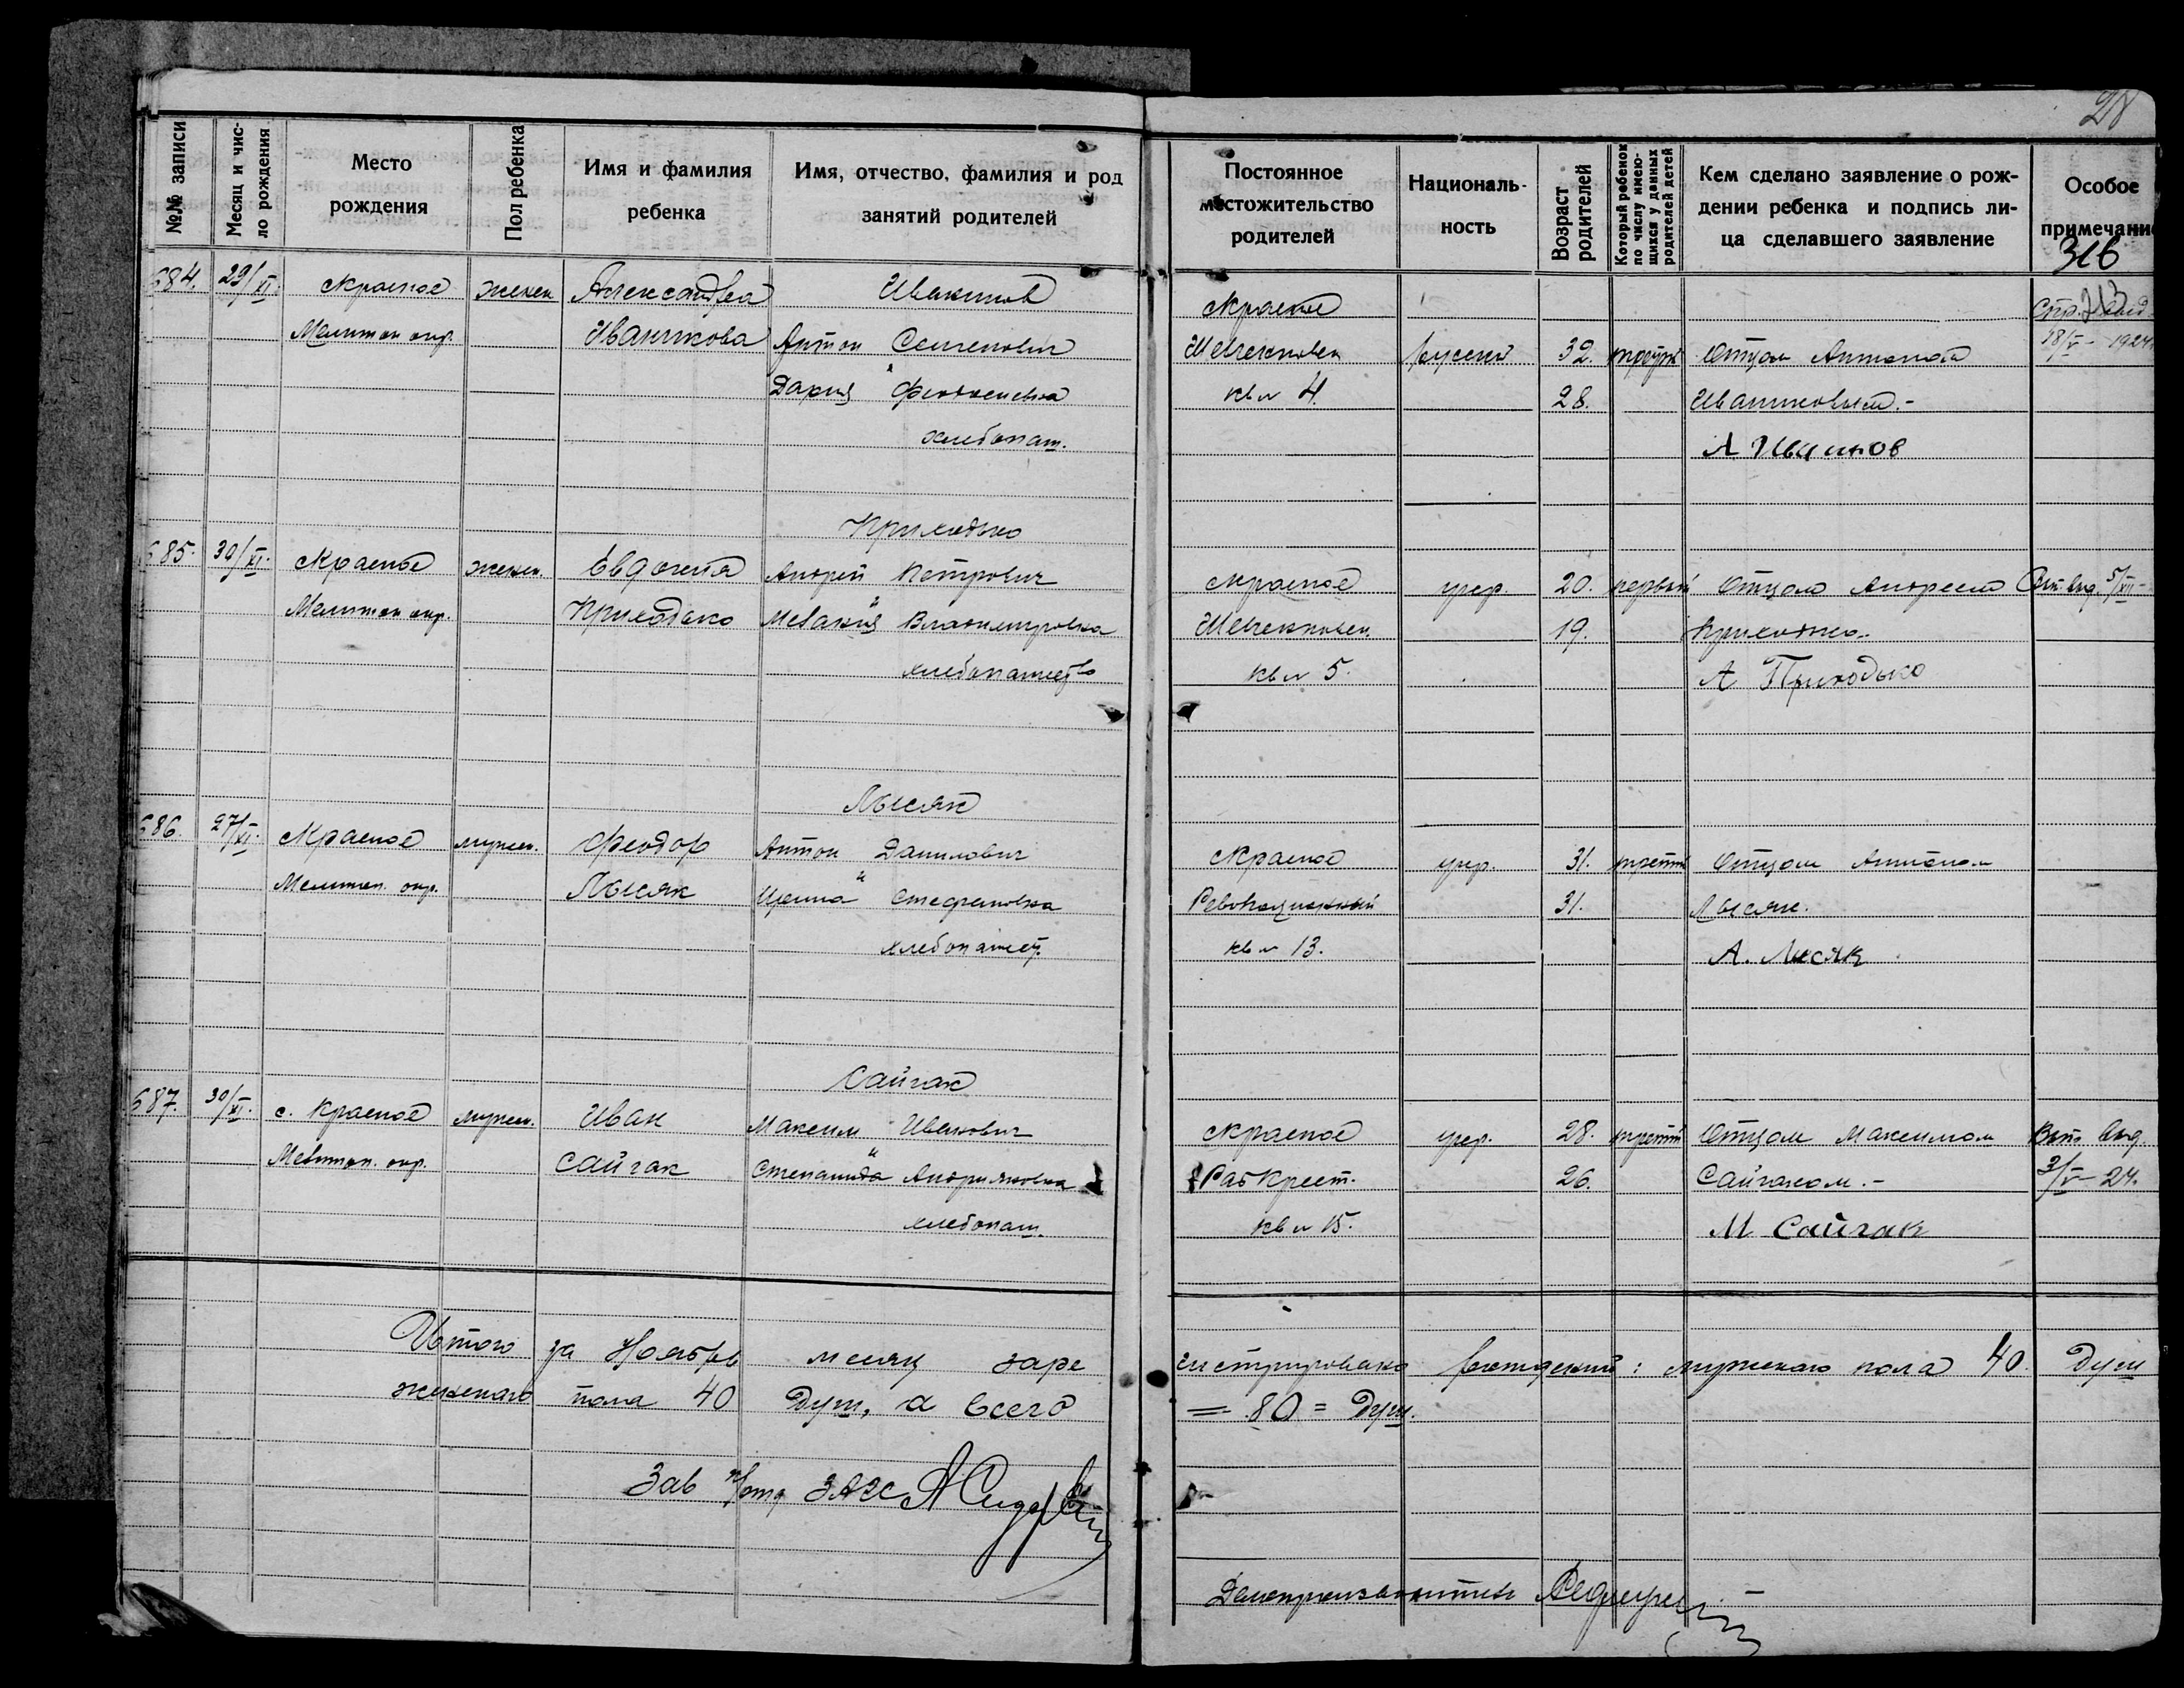 28
№№ записи
Месяц и чис-
ло рождения
Место
рождения
Пол ребенка
Имя и фамилия
ребенка
Имя, отчество, фамилия и род
занятий родителей
Постоянное
местожительство
родителей
Националь-
ность
Возраст
родителей
Который ребенок
по числу имею-
щихся у данных
родителей детей
Кем сделано заявление о рож-
дении ребенка и подпись ли-
ца сделавшего заявление
Особое
примечание
316
684. 29/XI. с Красное женск Александра
Мелитоп окр. Иваникова Антон Семенович
Дария
хлебопаш.
с Красное
32. Отцом Антоном
18/V - 1924
кв № 4. 28. Иваниковым.-
Приходько
685. 30/XI. с Красное женск. Евдокия Андрей Петрович
Мелитоп окр. Приходько Мелания Владимировна
хлебопашество
с Красное укр. 20. первый Отцом Андреем 5/XII -
19. Приходько.
кв № 5. А Приходько
Лысяк
686. 27/XI. с Красное мужск. Феодор Антон Данилович
Мелитоп. окр. Лысяк Ирина " Стефановна
хлебопашест.
с Красное укр. 31. третий Отцом Антоном
Революционный 31. Лысяк.
кв № 13. А. Лисяк
Сайгак
687. 30/XI. с. Красное мужск. Иван Максим Иванович
Мелитоп. окр. Сайгак Степанида " Андрияновна
хлебопаш.
с Красное укр. 28. третий Отцом Максимом Вып. выд.
Раб Крест. 26. Сайгаком.- 3/V - 24.
кв № 15. М Сайгак
Итого за Ноябрь месяц заре
гистрировано рождений: мужскаго пола 40. душ
женскаго пола 40 душ, а всего
= 80 = душ.
Зав п/отд ЗАГС
Делопроизводитель